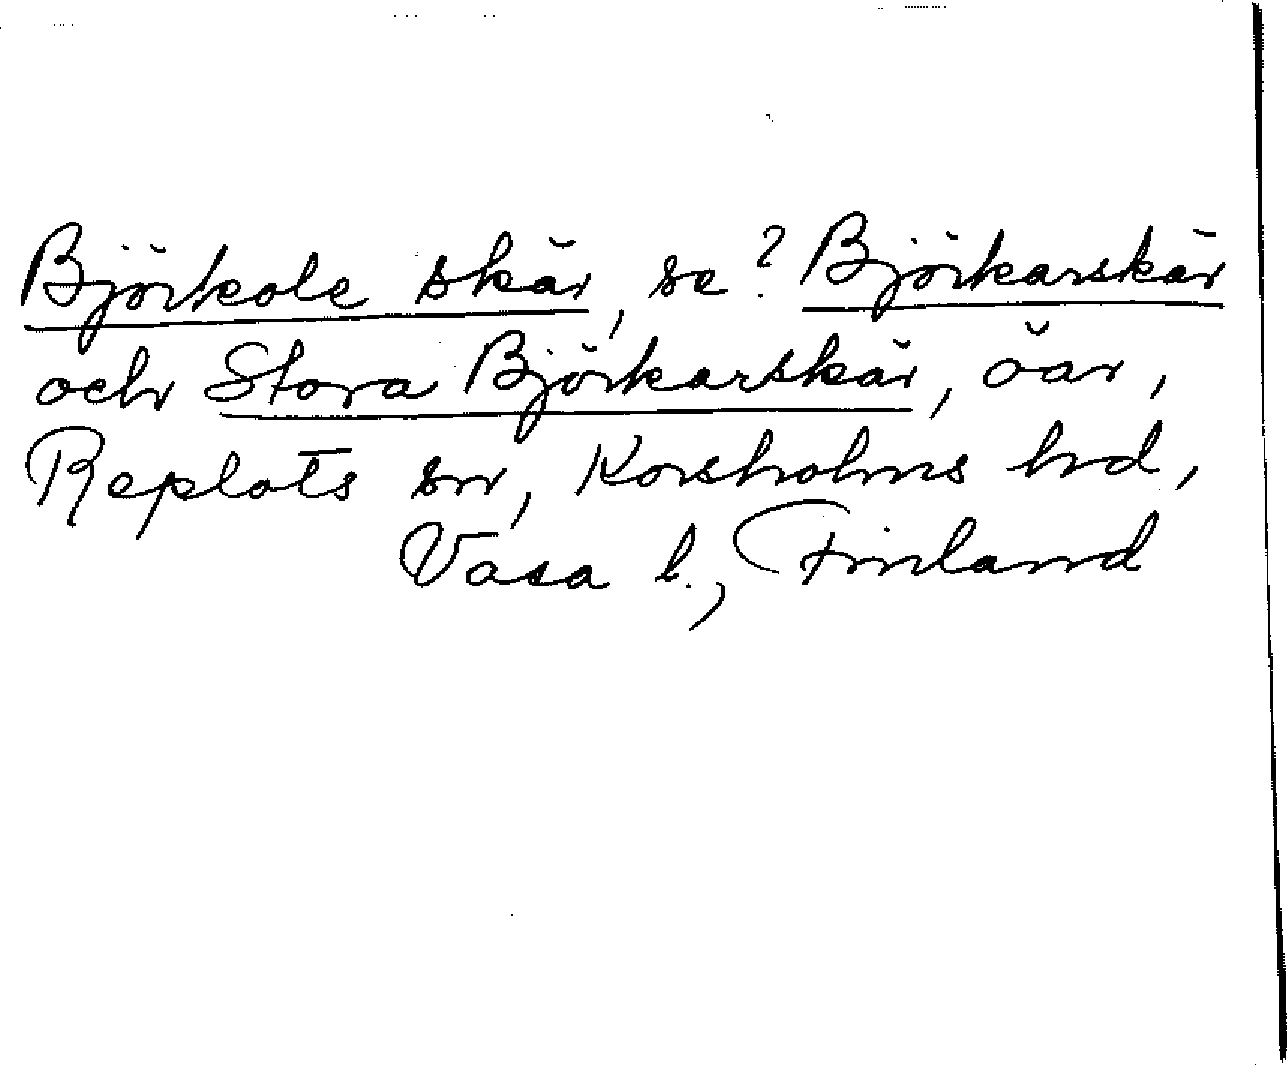 Björkole skär, se? Björkarskär
och Stora Björkarskär, öar,
Replots sn, Korsholms hd,
Vasa l., Finland